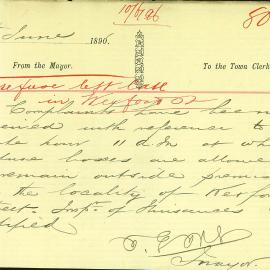 10/6/96 80
June 1896.
From the Mayor. To the Town Clerk
refuse left late
in Wexford St
Complaints have been
received with reference to
the hour 11 a.m. at wh
fuse boxes are allowed
remain outside premises
the locality of Wexfo
Street. Insp. of Nuisances
tified
Mayor.